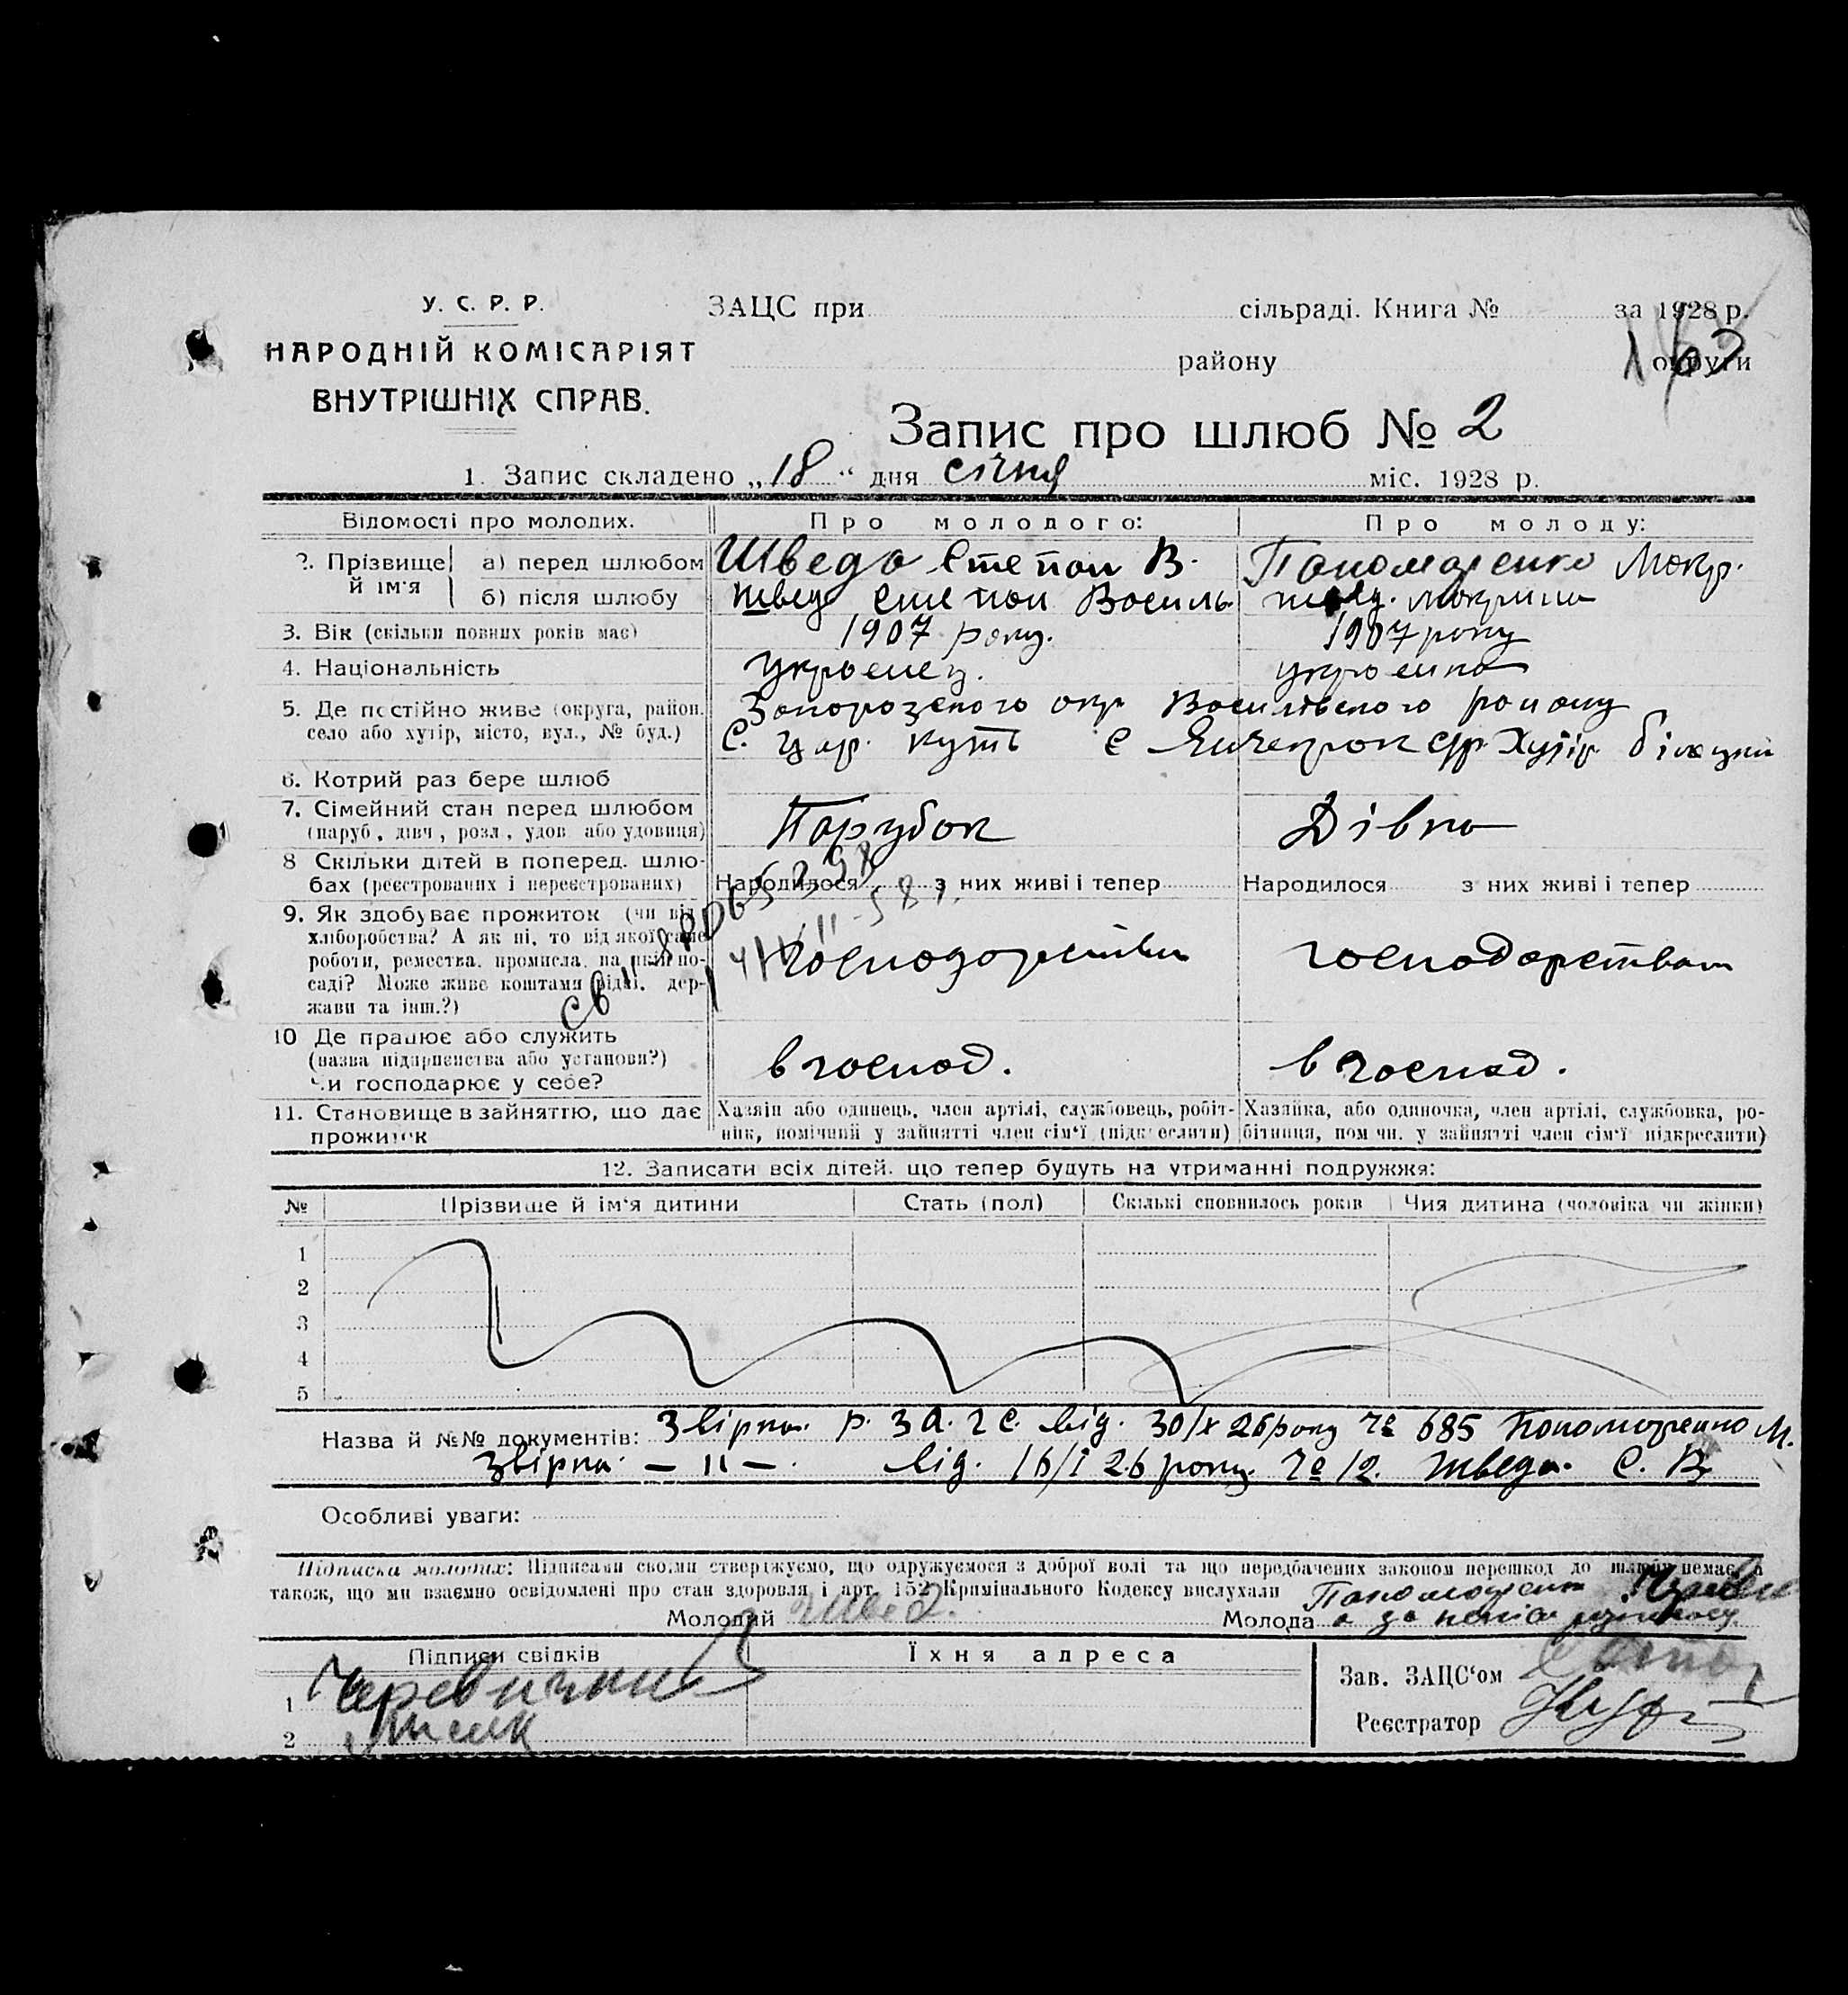 У. С. Р. Р.
НАРОДНІЙ КОМІСАРІЯТ
ВНУТРІШНІХ СПРАВ.
ЗАЦС при сільраді. Книга № за 1928 р.
району округи
Запис про шлюб № 2
1. Запис складено „18“ дня січня міс. 1928 р.
Відомості про молодих. Про молодого: Про молоду:
2. Прізвище й ім'я а) перед шлюбом Шведа Степан В. Пономаренко Мокр.
б) після шлюбу Швед Степан Василь Швед. Мокрина
3. Вік (скільки повних років має) 1907 року. 1907 року
4. Національність украенец. украенка
5. Де постійно живе (округа, район, Запорозского окр Василівского району
село або хутір, місто, вул., № буд.) С. Цар. Куть С Янчекрак Хутір
6. Котрий раз бере шлюб
7. Сімейний стан перед шлюбом Парубок Дівка
(паруб., дівч., розл., удов. або удовиця)
8 Скільки дітей в поперед. шлю-
бах (реєстрованих і нереєстрованих) Народилося з них живі і тепер Народилося з них живі і тепер
9. Як здобуває прожиток (чи від
хліборобства? А як ні, то від якої саме
роботи, ремества, промисла, на якій по-
саді? Може живе коштами рідні, дер-
жави та інш.?)
господарством господарством
10 Де працює або служить
(назва підприємства або установи?)
Чи господарює у себе?
в господ. в господ.
11. Становище в зайняттю, що дає прожиток
Хазяїн або одинець, член артілі, службовець, робіт-
ник, помічний у зайнятті член сім'ї (підкреслити)
Хазяйка, або одиночка, член артілі, службовка, ро-
бітниця, помічн. у зайнятті член сім'ї підкреслити)
12. Записати всіх дітей, що тепер будуть на утриманні подружжя:
№ Прізвище й ім'я дитини Стать (пол) Скількі сповнилось років Чия дитина (чоловіка чи жінки)
1
2
3
4
5
Назва й №№ документів: Звірка. р. З А. Г С. від. 30/х 26 року № 685 Пономаренко М.
Звірка. — 11 — . від. 16/І 26 року № 12. Шведа. С. В
Особливі уваги:
Підписка молодих: Підписами своїми стверджуємо, що одружуємося з доброї волі та що передбачених законом перешкод до шлюбу немає, а
також, що ми взаємно освідомлені про стан здоровля і арт. 152 Кримінального Кодексу вислухали
Молодий Швед. Молода Пономаренко
Підписи свідків Їхня адреса
1
2
Зав. ЗАЦС'ом
Реєстратор